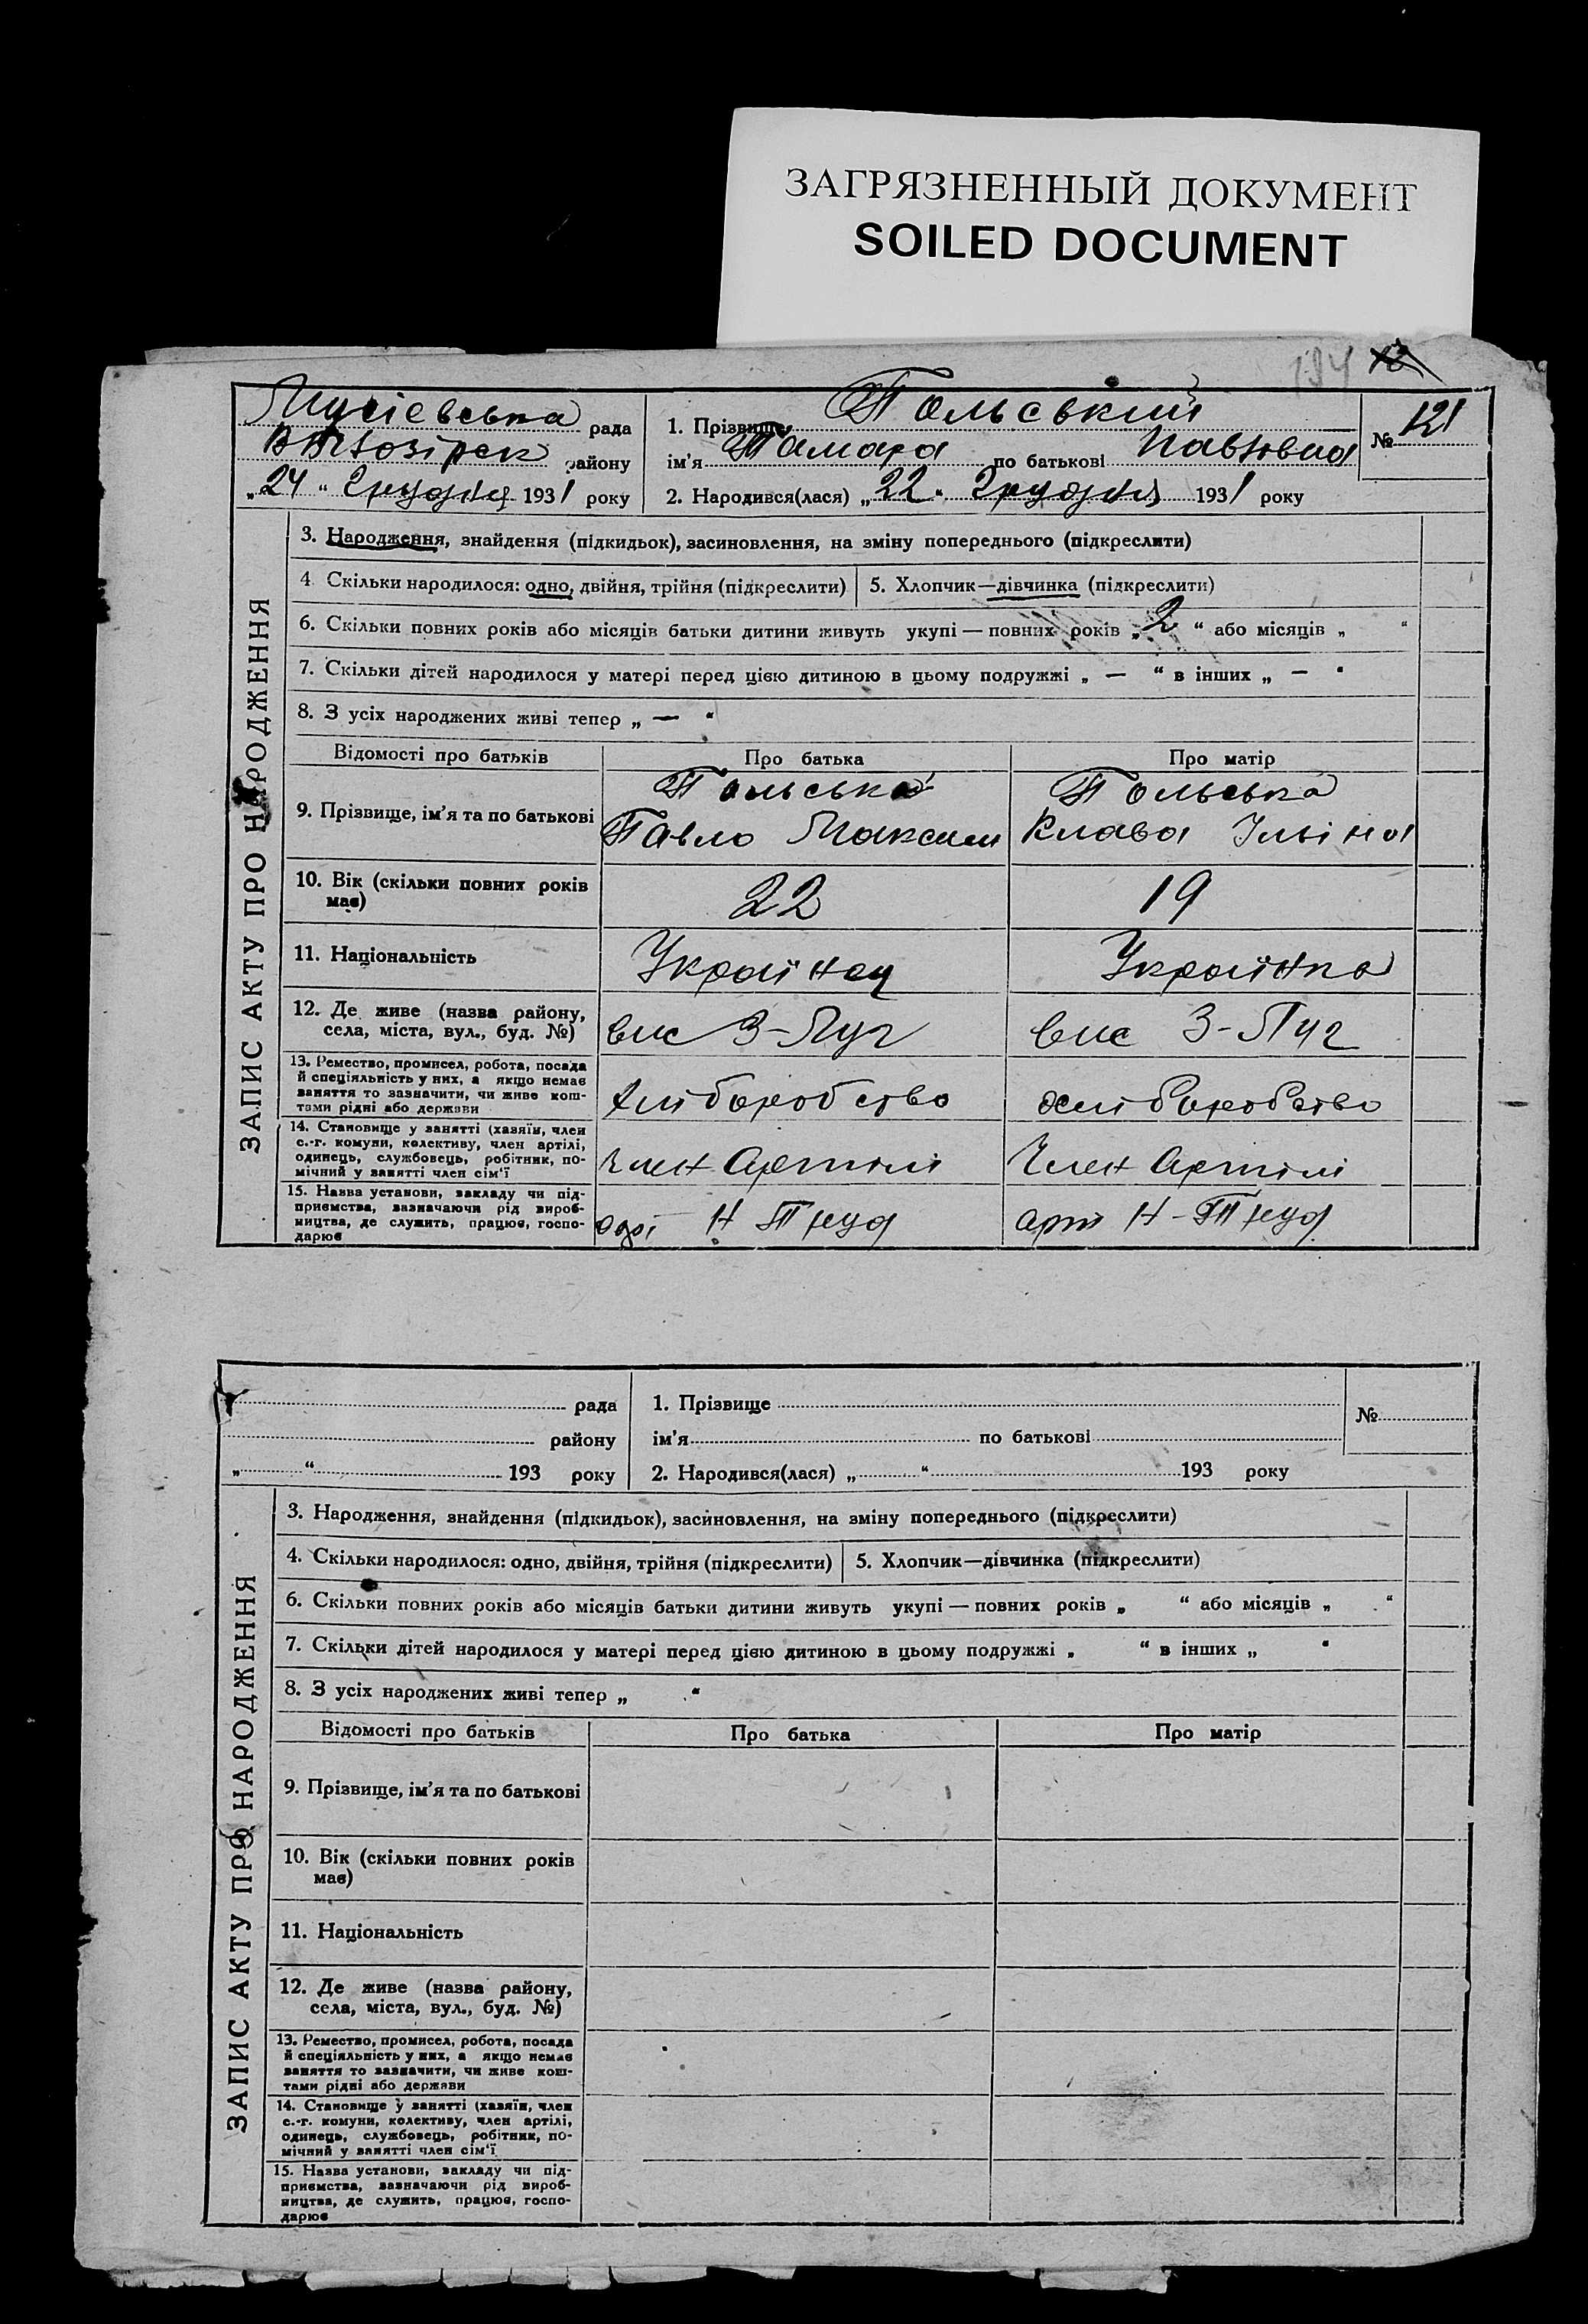 ЗАГРЯЗНЕННЫЙ ДОКУМЕНТ
SOILED DOCUMENT
194
рада
району
„24“ Грудня 1931 року
1. Прізвище Польський
ім'я Тамара по батькові Павловна
2. Народився(лася) „22“ Грудня 1931 року
№ 121
ЗАПИС АКТУ ПРО НАРОДЖЕННЯ
3. Народження, знайдення (підкидьок), засиновлення, на зміну попереднього (підкреслити)
4 Скільки народилося: одно, двійня, трійня (підкреслити)
5. Хлопчик—дівчинка (підкреслити)
6. Скільки повних років або місяців батьки дитини живуть укупі — повних років „2“ або місяців „ “
7. Скільки дітей народилося у матері перед цією дитиною в цьому подружжі „ — “ в інших „ — “
8. З усіх народжених живі тепер „ — “
Відомості про батьків
Про батька
Про матір
9. Прізвище, ім'я та по батькові
Польський
Павло Максим
Польська
Клава Ільінa
10. Вік (скільки повних років
має)
22
19
11. Національність
Українец
Українка
12. Де живе (назва району,
села, міста, вул., буд. №)
вис З-Луг
вис З-Луг
13. Ремество, промисел, робота, посада
й спеціяльність у них, а якщо немає
заняття то зазначити, чи живе кош-
тами рідні або держави
хліборобство
хліборобство
14. Становище у занятті (хазяїн, член
с.-г. комуни, колективу, член артілі,
одинець, службовець, робітник, по-
мічний у занятті член сім'ї
Член Артілі
Член Артілі
15. Назва установи, закладу чи під-
приємства, зазначаючи рід вироб-
ництва, де служить, працює, госпо-
дарює
Н Труд
арт Н-Труд
рада
району
„ “ 193 року
1. Прізвище
ім'я по батькові
2. Народився(лася) „ “ 193 року
№
ЗАПИС АКТУ ПРО НАРОДЖЕННЯ
3. Народження, знайдення (підкидьок), засиновлення, на зміну попереднього (підкреслити)
4. Скільки народилося: одно, двійня, трійня (підкреслити)
5. Хлопчик—дівчинка (підкреслити)
6. Скільки повних років або місяців батьки дитини живуть укупі — повних років „ “ або місяців „ “
7. Скільки дітей народилося у матері перед цією дитиною в цьому подружжі „ “ в інших „ “
8. З усіх народжених живі тепер „ “
Відомості про батьків
Про батька
Про матір
9. Прізвище, ім'я та по батькові
10. Вік (скільки повних років
має)
11. Національність
12. Де живе (назва району,
села, міста, вул., буд. №)
13. Ремество, промисел, робота, посада
й спеціяльність у них, а якщо немає
заняття то зазначити, чи живе кош-
тами рідні або держави
14. Становище у занятті (хазяїн, член
с.-г. комуни, колективу, член артілі,
одинець, службовець, робітник, по-
мічний у занятті член сім'ї
15. Назва установи, закладу чи під-
приємства, зазначаючи рід вироб-
ництва, де служить, працює, госпо-
дарює